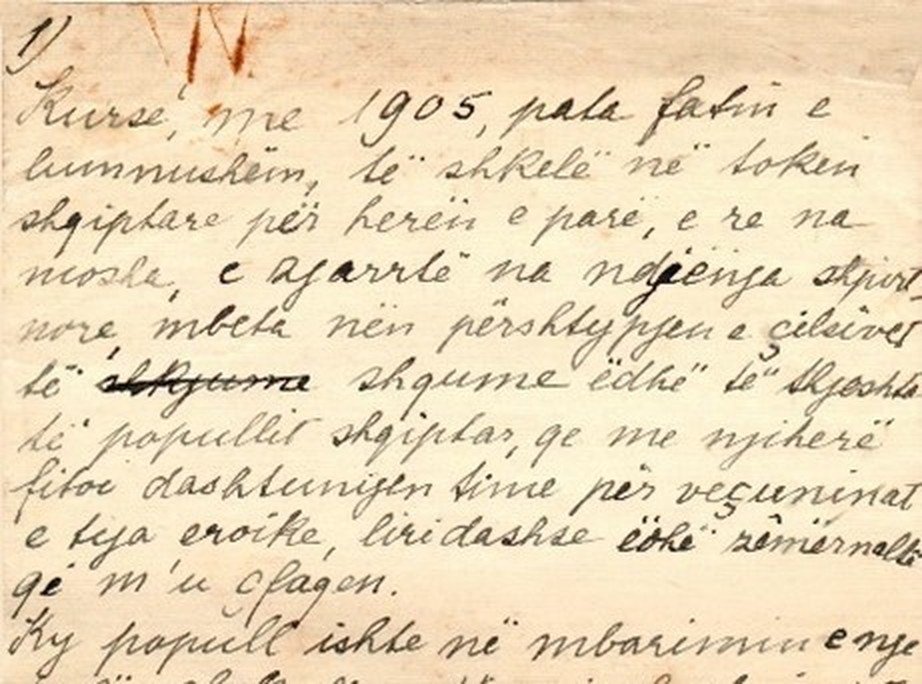 1)
Kursé, me 1905, pata fatin e
lumnushëm, të shkelë në tokën
shqiptare për herën e parë, e re na
mosha, e zgarrtë na ndjënja shpirt
nore, mbeta nën përshtypjen e çilsivet
të shkjume shqume ëdhë të thjeshta
të popullit shqiptar, qe me njiherë
fitoi dashtunigen time për veçuninat
e tija eroike, liridashse ëdhë zêmërnalta
që m'u çfaqen.
Ky popull ishte në mbarimin e nje